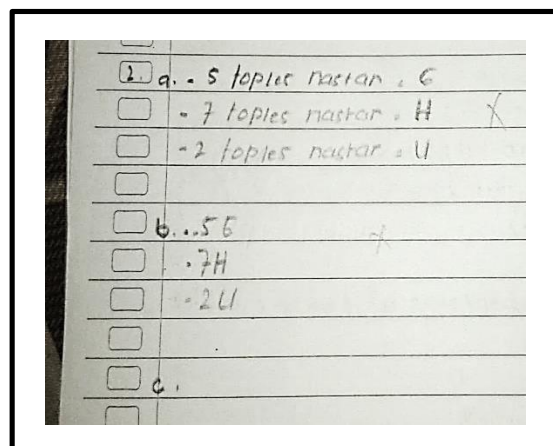 2. a. - 5 toples nastar = G
- 7 toples nastar = H
- 2 toples nastar = U
b. . - 5 G
- 7H
- 2U
c.